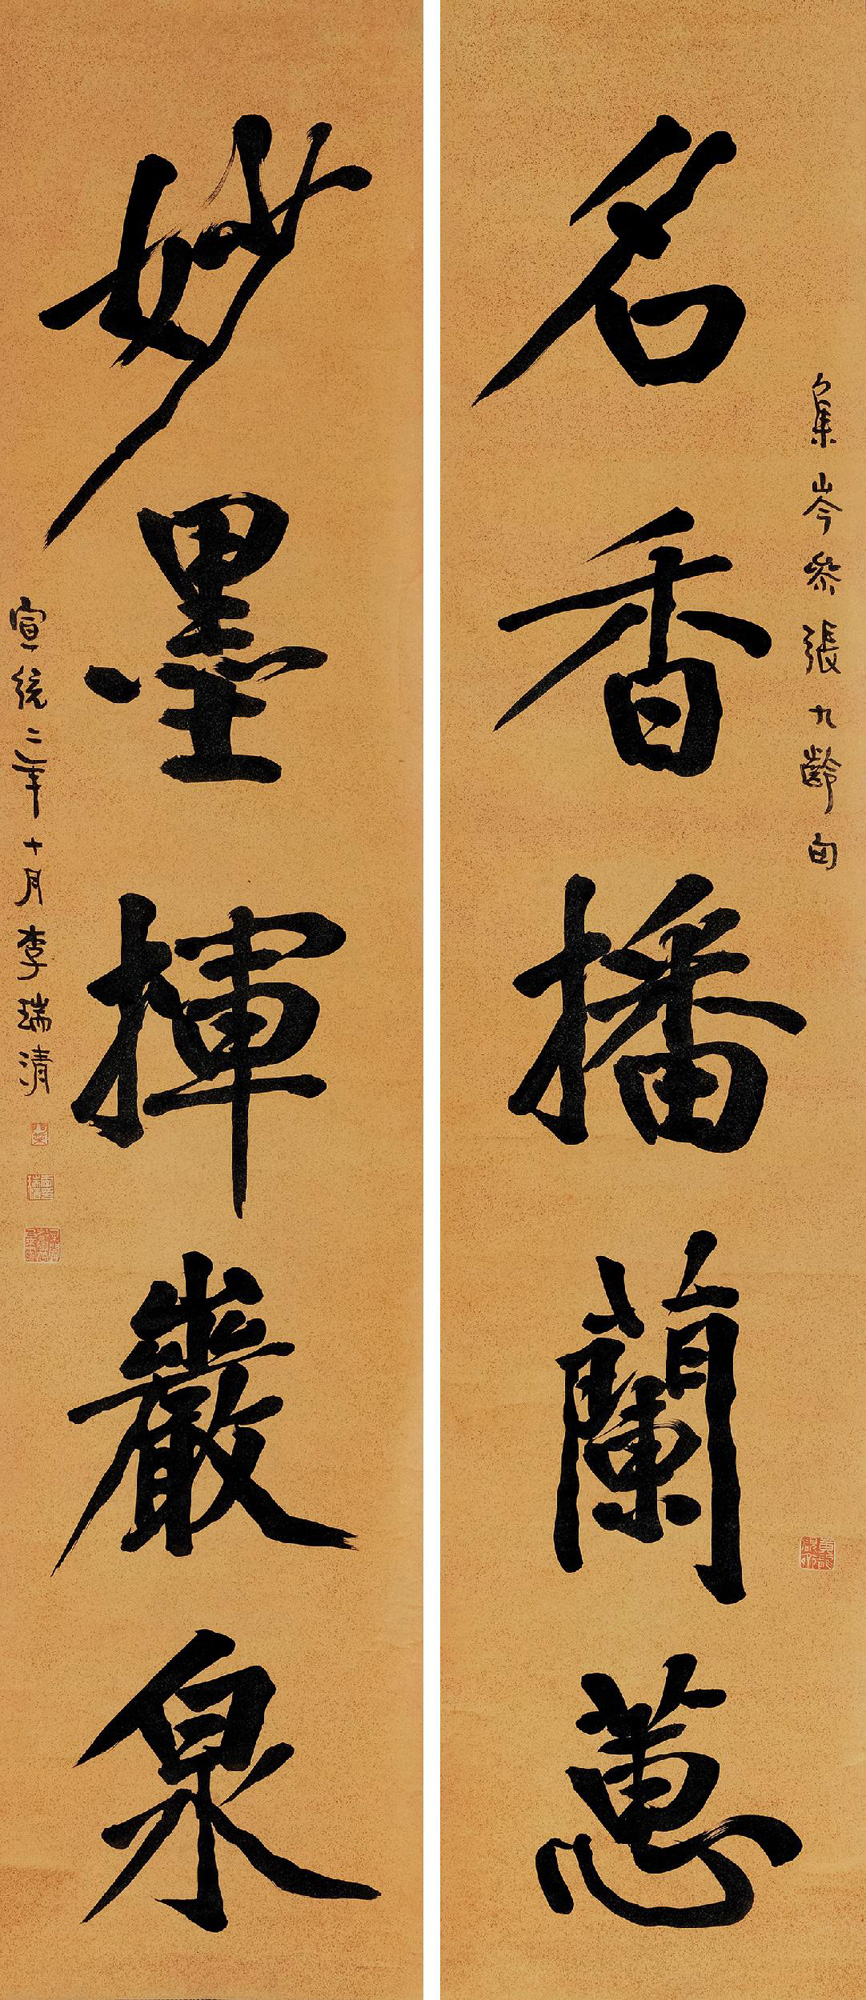 集岑參張九齡句
名香播蘭蕙
妙墨揮巖泉
宣統二年十月李瑞清